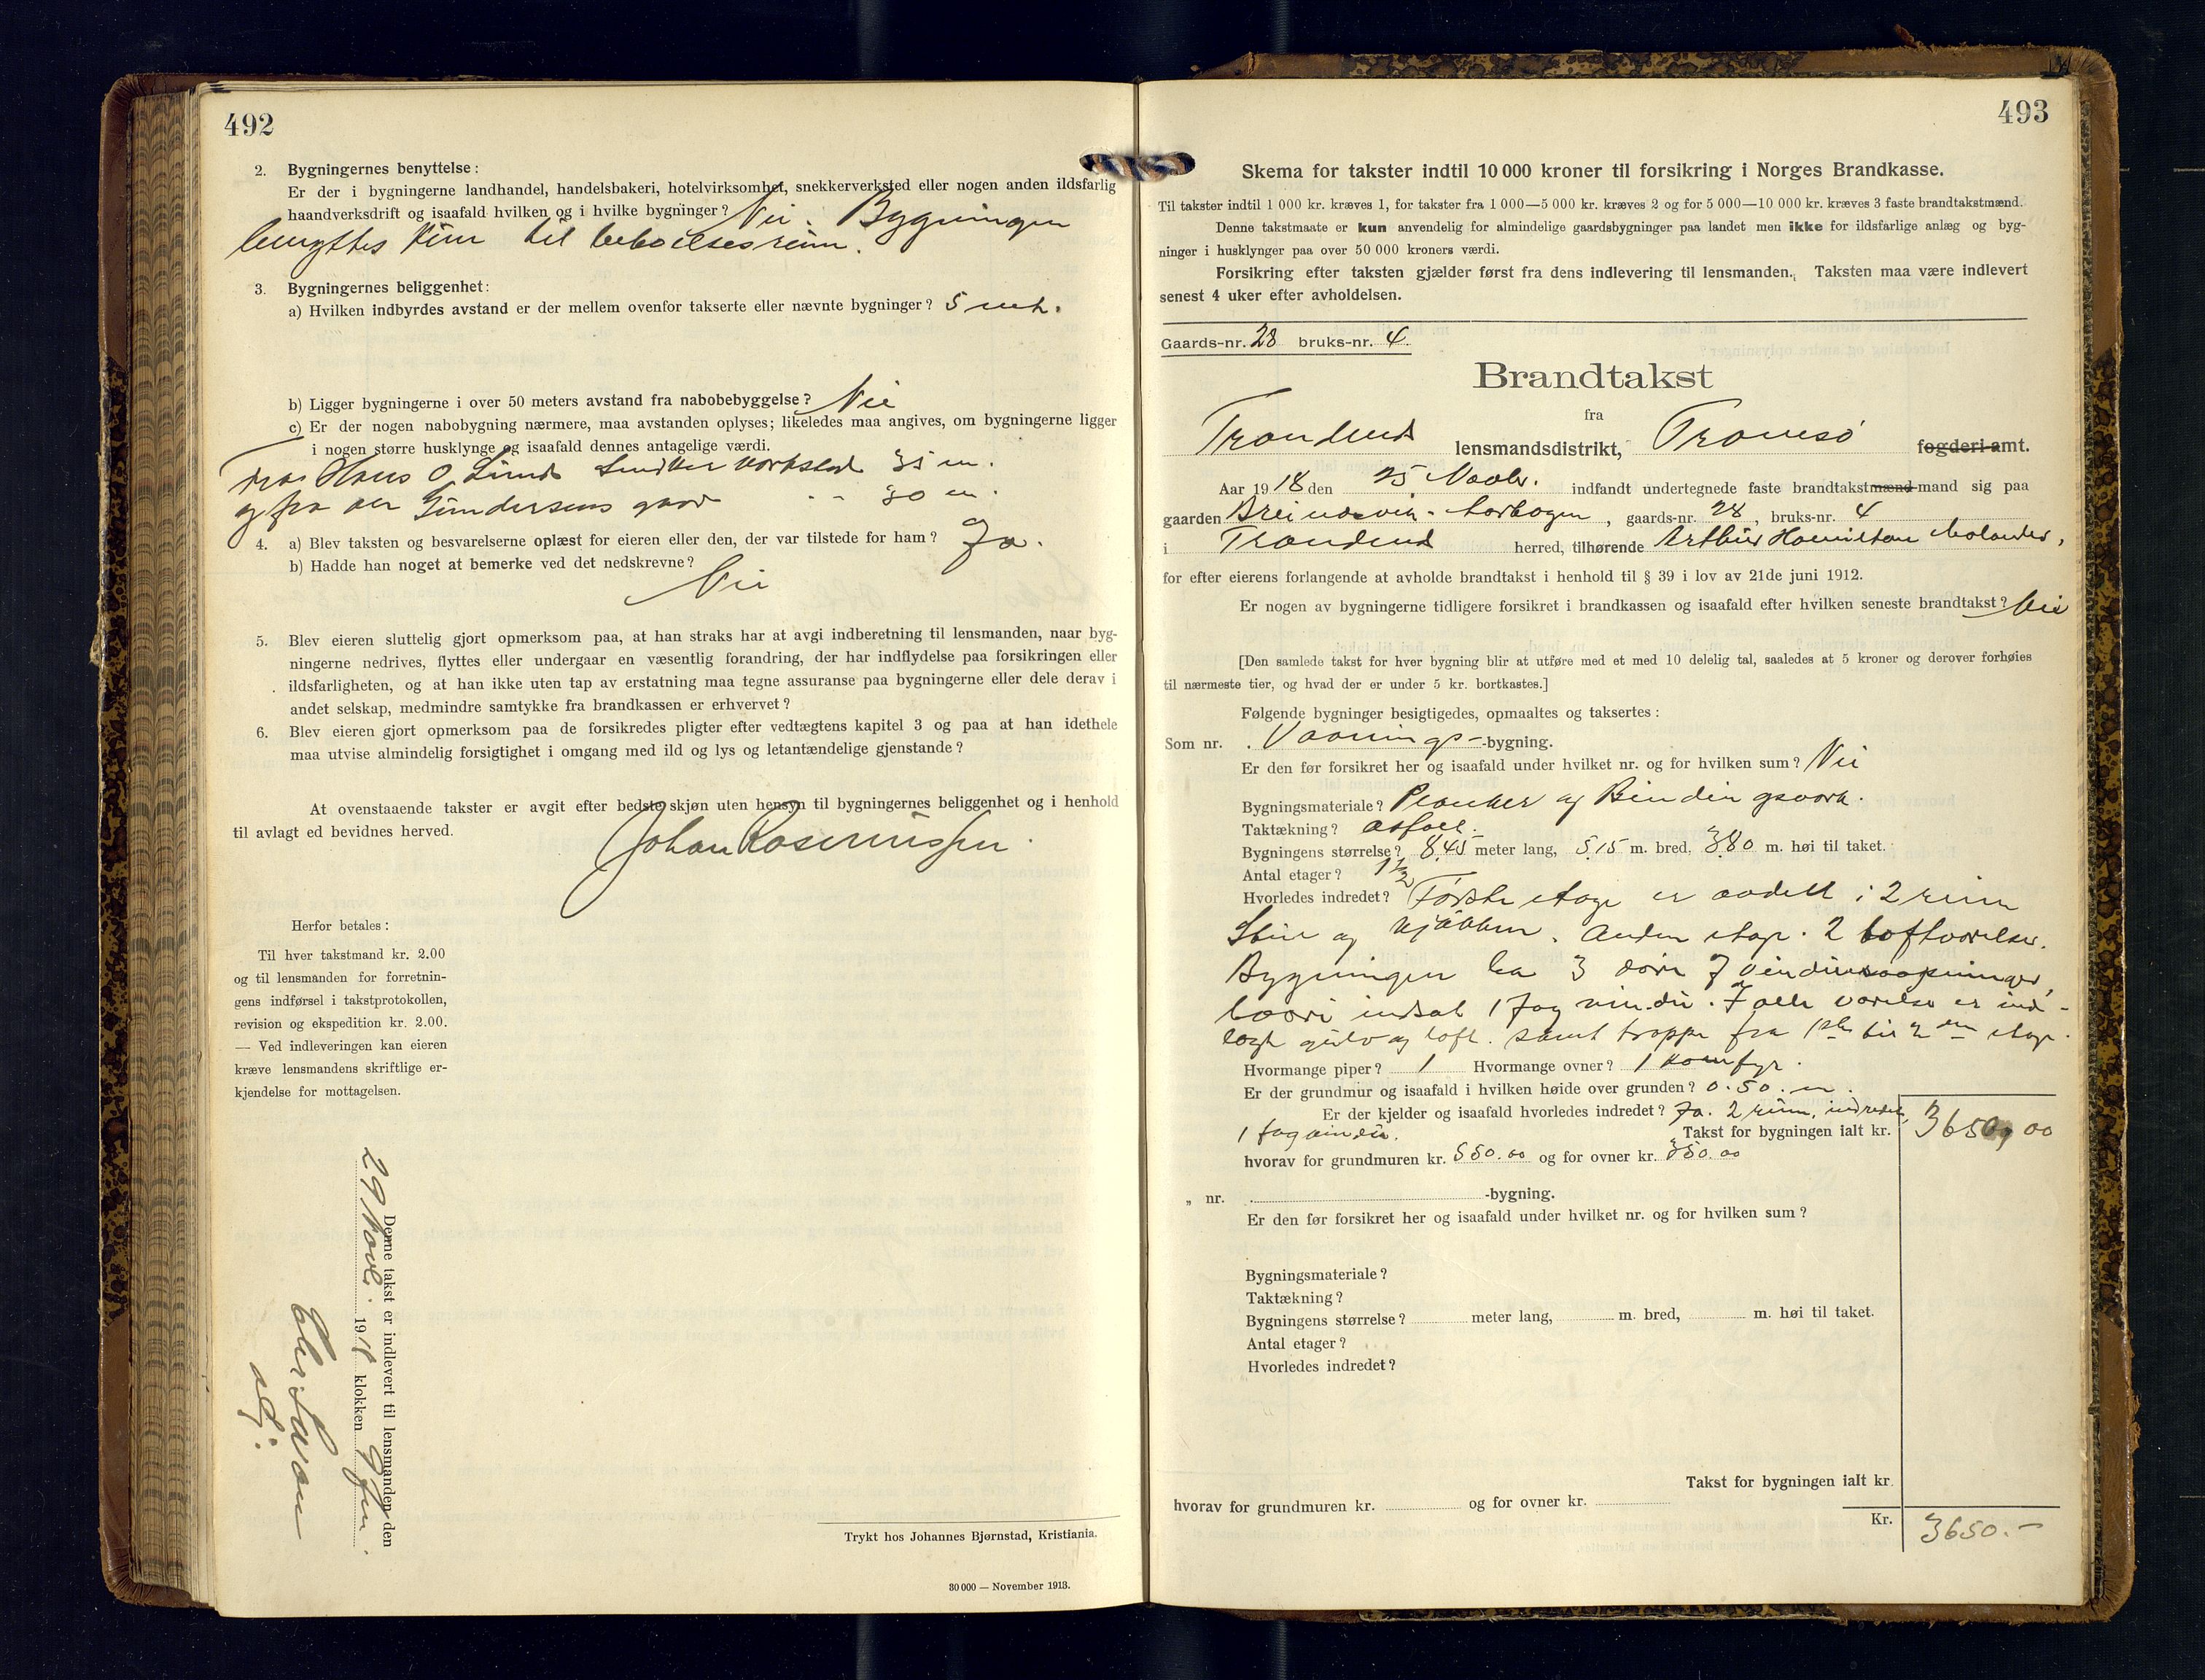 492
2. Bygningernes benyttelse:
Er der i bygningerne landhandel, handelsbakeri, hotelvirksomhet, snekkerverksted eller nogen anden ildsfarlig
haandverksdrift og isaafald hvilken og i hvilke bygninger? Nei. Bygningen
benyttes kun til beboelsesrum.
3. Bygningernes beliggenhet:
a) Hvilken indbyrdes avstand er der mellem ovenfor takserte eller nævnte bygninger? 5 met.
b) Ligger bygningerne i over 50 meters avstand fra nabobebyggelse? Nei
c) Er der nogen nabobygning nærmere, maa avstanden oplyses; likeledes maa angives, om bygningerne ligger
i nogen større husklynge og isaafald dennes antagelige værdi.
Fra Hans O. Lunds Snedker verksted 35 m.
og fra Gundersens gaard " - 30 m.
4. a) Blev taksten og besvarelserne oplæst for eieren eller den, der var tilstede for ham? Ja.
b) Hadde han noget at bemerke ved det nedskrevne?
Nei
5. Blev eieren sluttelig gjort opmerksom paa, at han straks har at avgi indberetning til lensmanden, naar byg-
ningerne nedrives, flyttes eller undergaar en væsentlig forandring, der har indflydelse paa forsikringen eller
ildsfarligheten, og at han ikke uten tap av erstatning maa tegne assuranse paa bygningerne eller dele derav i
andet selskap, medmindre samtykke fra brandkassen er erhvervet?
6. Blev eieren gjort opmerksom paa de forsikredes pligter efter vedtægtens kapitel 3 og paa at han idethele
maa utvise almindelig forsigtighet i omgang med ild og lys og letantændelige gjenstande?
At ovenstaaende takster er avgit efter bedste skjøn uten hensyn til bygningernes beliggenhet og i henhold
til avlagt ed bevidnes herved.
Johan Rasmussen.
Herfor betales:
Til hver takstmand kr. 2.00
og til lensmanden for forretnin-
gens indførsel i takstprotokollen,
revision og ekspedition kr. 2.00.
— Ved indleveringen kan eieren
kræve lensmandens skriftlige er-
kjendelse for mottagelsen.
Denne takst er indlevert til lensmanden den
29 Novbr. 1918 klokken 9 fm.
Trykt hos Johannes Bjørnstad, Kristiania.
30 000 — November 1913.
493
Skema for takster indtil 10 000 kroner til forsikring i Norges Brandkasse.
Til takster indtil 1 000 kr. kræves 1, for takster fra 1 000—5 000 kr. kræves 2 og for 5 000—10 000 kr. kræves 3 faste brandtakstmænd.
Denne takstmaate er kun anvendelig for almindelige gaardsbygninger paa landet men ikke for ildsfarlige anlæg og byg-
ninger i husklynger paa over 50 000 kroners værdi.
Forsikring efter taksten gjælder først fra dens indlevering til lensmanden. Taksten maa være indlevert
senest 4 uker efter avholdelsen.
Gaards-nr. 28 bruks-nr. 4.
Brandtakst
fra
Trondenes lensmandsdistrikt, Tromsø fogderi amt.
Aar 1918 den 25 Novbr. indfandt undertegnede faste brandtakstmænd mand sig paa
gaarden , gaards-nr. 28, bruks-nr. 4
i Trondenes herred, tilhørende Arthur Hamilton Molander,
for efter eierens forlangende at avholde brandtakst i henhold til § 39 i lov av 21de juni 1912.
Er nogen av bygningerne tidligere forsikret i brandkassen og isaafald efter hvilken seneste brandtakst? Nei
[Den samlede takst for hver bygning blir at utføre med et med 10 delelig tal, saaledes at 5 kroner og derover forhøies
til nærmeste tier, og hvad der er under 5 kr. bortkastes.]
Følgende bygninger besigtigedes, opmaaltes og taksertes:
Som nr. . Vaanings- -bygning.
Er den før forsikret her og isaafald under hvilket nr. og for hvilken sum? Nei
Bygningsmateriale? Planker og Bindingsverk.
Taktækning? asfalt.
Bygningens størrelse? 8,45 meter lang, 5,15 m. bred, 3,80 m. høi til taket.
Antal etager? 1 1/2
Hvorledes indredet? Første etage er avdelt i 2 rum
Stue og kjøkken. Anden etage. 2 loftværelser.
Bygningen har 3 døre 7 vindusaapninger,
hvori indsat 1 fag vindu. I alle værelser er ind-
lagt gulv og loft. samt trappe fra 1ste til 2den etage.
Hvormange piper? 1 Hvormange ovner? 1 komfyr.
Er der grundmur og isaafald i hvilken høide over grunden? 0.50. m.
Er der kjelder og isaafald hvorledes indredet? Ja. 2 rum, indredet,
1 fag vindu. Takst for bygningen ialt kr. 3650,00
hvorav for grundmuren kr. 550.00 og for ovner kr. 350.00
„ nr. . -bygning.
Er den før forsikret her og isaafald under hvilket nr. og for hvilken sum?
Bygningsmateriale?
Taktækning?
Bygningens størrelse? meter lang, m. bred, m. høi til taket.
Antal etager?
Hvorledes indredet?
Takst for bygningen ialt kr.
hvorav for grundmuren kr. og for ovner kr.
Kr. 3650.-